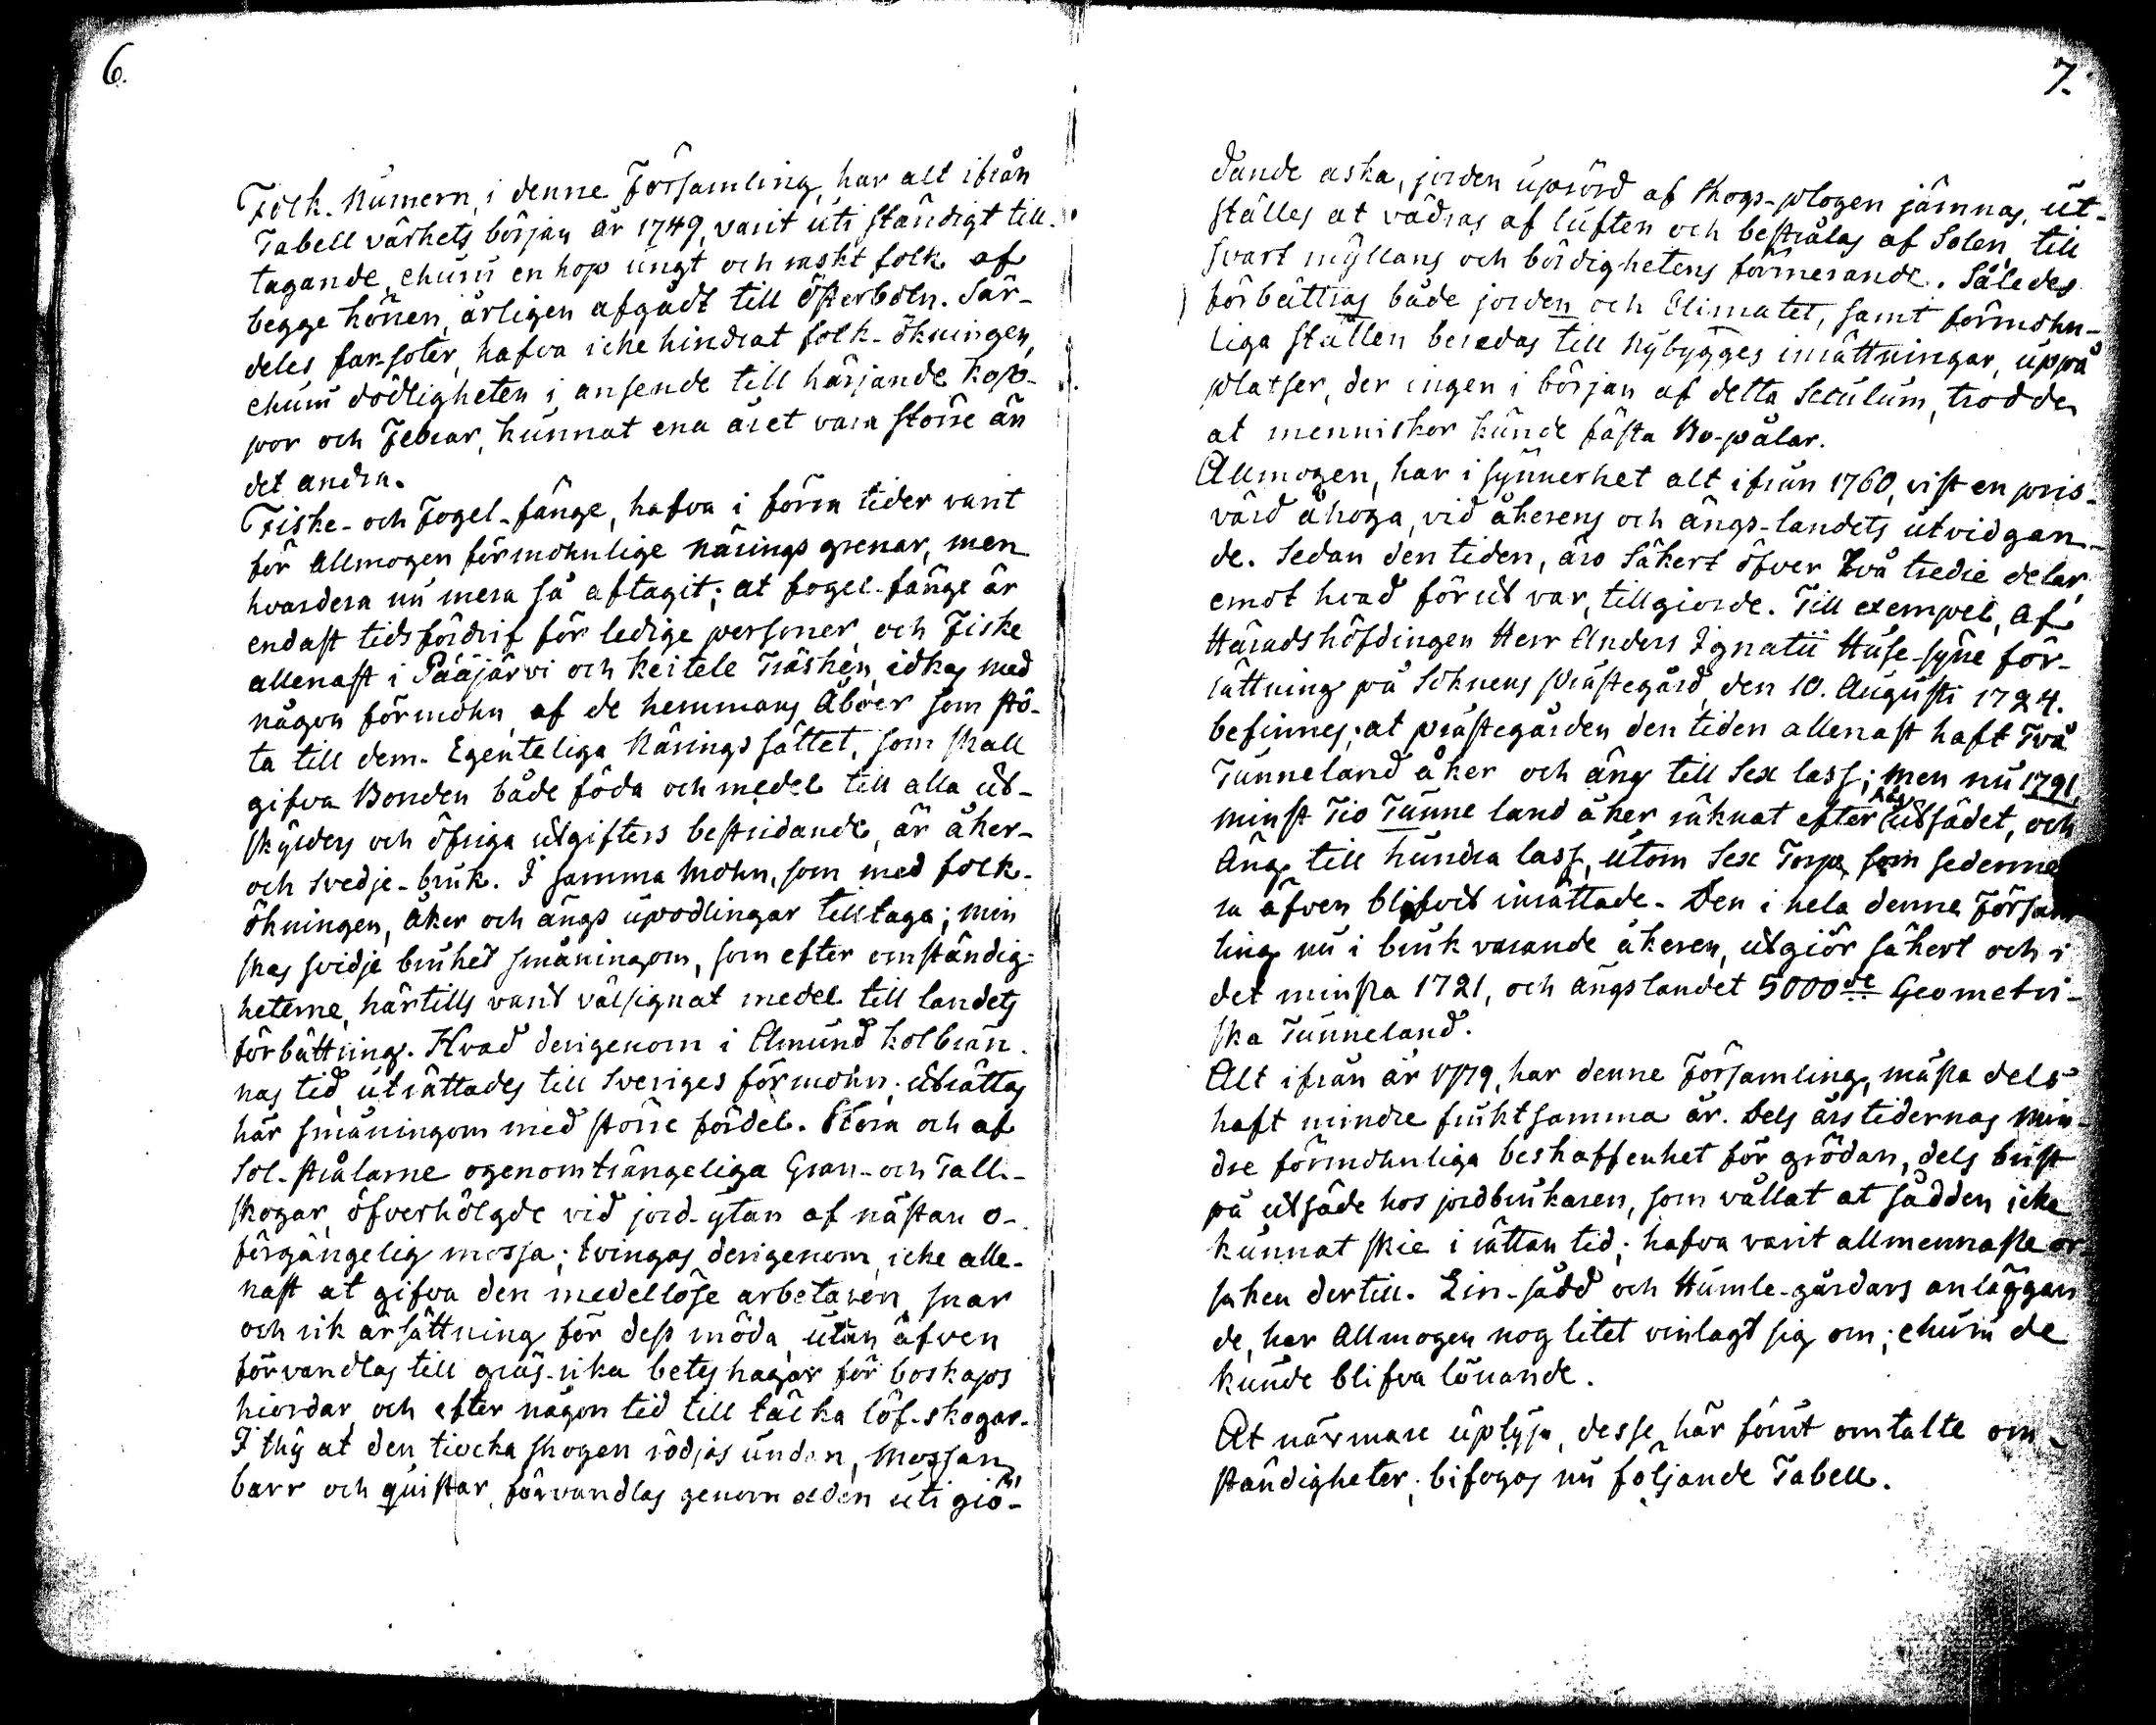 6.
Folk-Numern, i denne Församling, har alt ifrån
Tabell värkets början år 1749, varit uti ständigt till-
tagande, ehuru en hop ungt och raskt folk af
begge könen, årligen afgådt till Österbotn. Sär-
deles farsoter, hafva icke hindrat folk-ökningen,
ehuru dödligheten i anseende till härjande Kop-
por och Febrar, kunnat ena året vara större än
det andra.
Fiske- och Fogel-fänge, hafva i förra tider varit
för Allmogen förmohnlige Närings grenar, men
hvardera nu mera så aftagit; at fogel-fänge är
endast tidsfördrif för ledige personer, och Fiske
allenast i Pääjärvi och Keitele Träsken, idkas med
någon förmohn, af de hemmans Åboer som stö-
ta till dem. Egenteliga Näringssättet, som skall
gifva Bonden både föda och medel till alla ut-
skylders och öfriga utgifters bestridande, är åker-
och Svedje-bruk. I samma Mohn, som med folk-
ökningen, åker och ängs upodlingar tilltaga; min
skas svidje bruket småningom, som efter omständig-
heterne, härtills varit välsignat medel till landets
förbättring. Hvad derigenom i Amund Kolbrän-
nas tid uträttades till Sveriges förmohn; uträttas
här småningom med större fördel. Stora och af
Sol-strålarne ogenomträngeliga Gran- och Tall-
skogar, öfverhölgde vid jord-ytan af nästan o-
förgängelig mossa; tvingas derigenom, icke alle-
nast at gifva den medellöse arbetaren, snar
och rik ärsättning för dess möda, utan äfven
förvandlas till gräs-rika betes hagar för boskaps
hiordar, och efter någon tid till täcka löf-skogar.
I thy at den tiocka skogen rödjas undan, Mossan,
barr och quistar, förvandlas genom elden uti giö-
7.
dande aska, jorden uprörd af Skogs-plogen jämnas, ut-
ställes at vädras af luften och bestrålas af Solen, till
svart myllans och bördighetens förmerande. Således
förbättras både jorden och Climatet, samt förmohn-
liga ställen beredas till Nybygges inrättningar, uppå
platser, der ingen i början af detta Seculum, trodde
at menniskor kunde fästa Bo-pålar.
Allmogen, har i synnerhet alt ifrån 1760, vist en pris-
värd åhoga, vid åkerens och ängs-landets utvidgan-
de. Sedan den tiden, äro säkert öfver två tredie delar,
emot hvad förut var, tillgiorde. Till exempel, af
Häradshöfdingen Herr Anders Ignatii Huse-syne för-
rättning på Soknens Prästegård, den 10. Augusti 1724.
befinnes; at prästegården den tiden allenast haft Två
Tunneland åker och äng till Sex lass; Men nu 1791,
minst Tio Tunne land åker räknat efter Råg utsädet, och
Äng till hundra lass, utom Sex Torp, som sederme
ra äfven blifvit inrättade. Den i hela denne Försam
ling nu i bruk varande åkeren, utgiör säkert och i
det minsta 1721, och ängslandet 5000de Geometri-
ska Tunneland.
Alt ifrån år 1779, har denne Församling, mästa dels
haft mindre fruktsamma år. Dels årstidernas Min-
dre förmohnliga beskaffenhet för grödan, dels brist
på utsäde hos jordbrukaren, som vållat at sådden icke
kunnat skie i rättan tid; hafva varit allmennaste or-
saken dertill. Lin-sådd och Humle-gårdars anläggan
de, har Allmogen nog litet vinlagt sig om; ehuru de
kunde blifva lönande.
At närmare uplysa, desse här förut omtalte om-
ständigheter; bifogas nu följande Tabell.